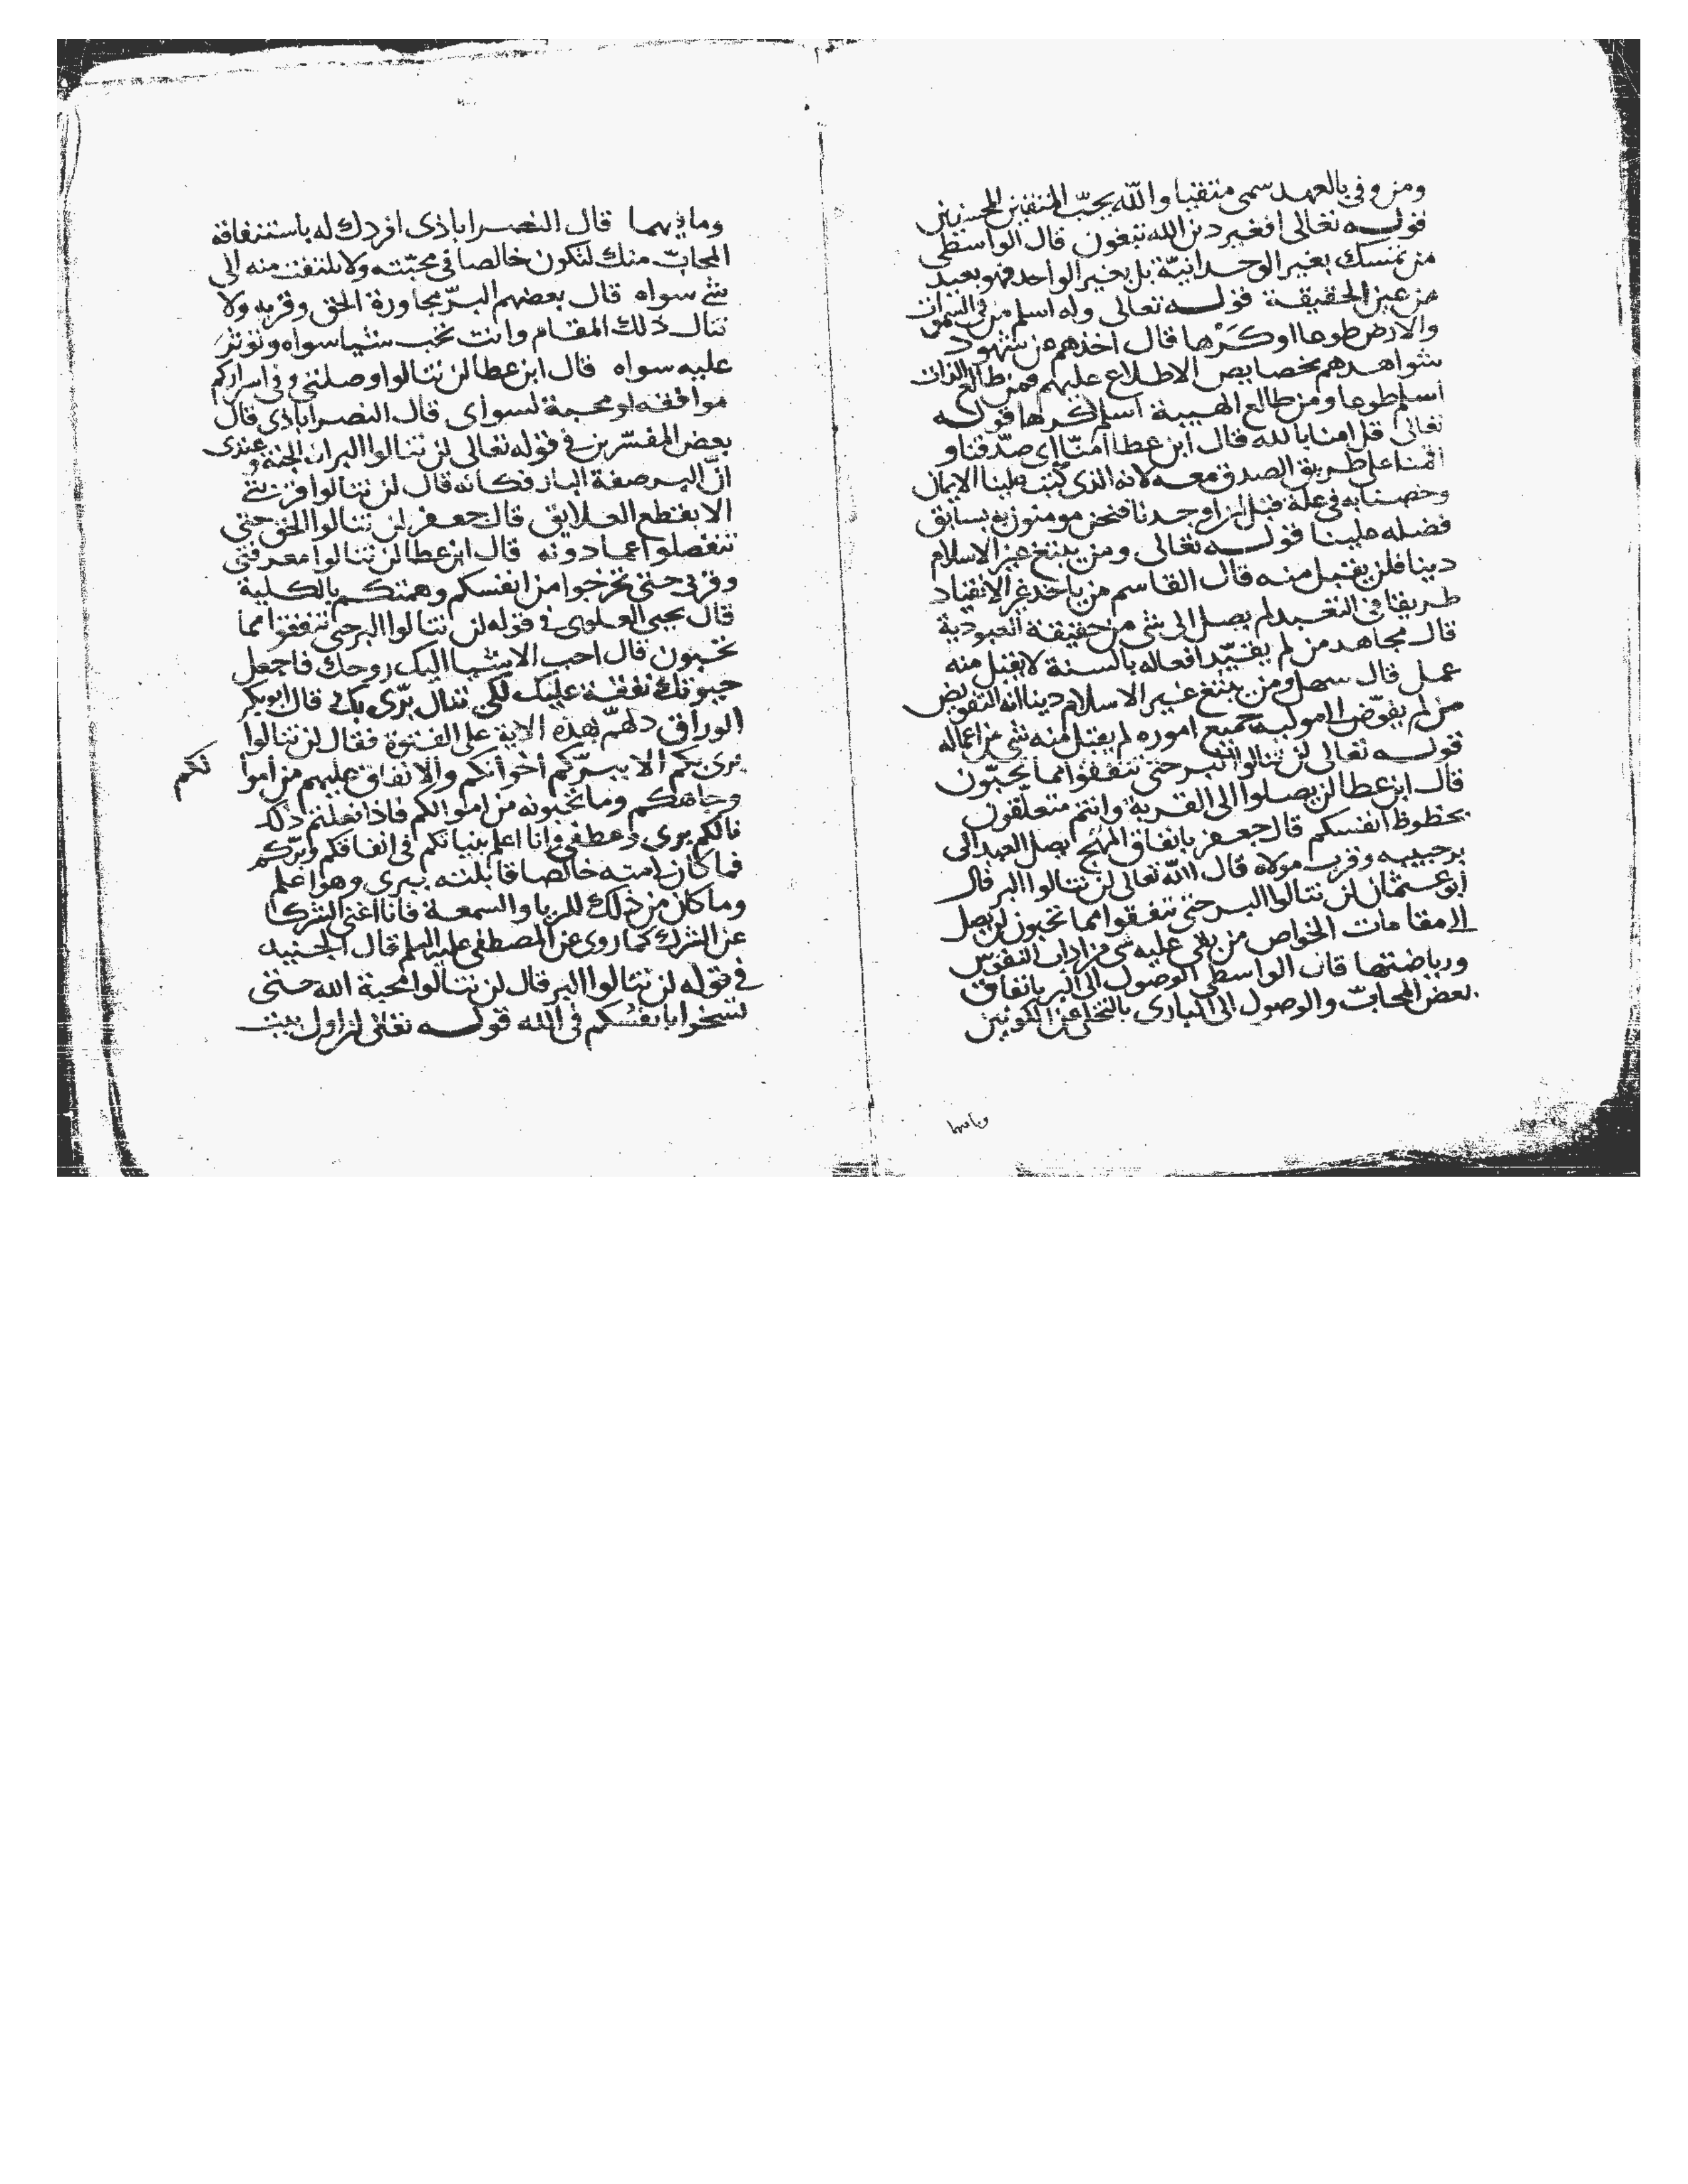 ومن وفى بالعهد سمى متقيا والله يحبّ المتقين المحسنين
قوله تعالى افغير دين الله تبغون قال الواسطى
من تمسك بغير الوحدانيّة بل بغير الواحد فهو بعيد
من عين الحقيقة قوله تعالى وله اسلم من فى السموات
والارض طوعا اوكَرْها قال اخذهم عن شهود
شواهدهم بخصايص الاطلاع عليهم فمن طالع الذات
اسلم طوعا ومن طالع الهيبة اسلم كرها قوله
تعالى قل امنا بالله قال ابن عطا امنّا اى صدّقنا و
اقمنا على طريق الصدق معه لانه الذى كتب علينا الايمان
وخصنا به فى علمه قبل ان اوجدنا فنحن مومنون به بسابق
فضله علينا قوله تعالى ومن يبتغ غير الاسلام
دينا فلن يقبل منه قال القاسم من ياخذ غير الانقياد
طريقا فى التعبد لم يصل الى شى من حقيقة العبودية
قال مجاهد من لم يقيّد افعاله بالسنة لا يقبل منه
عمل قال سهل ومن يبتغ غير الاسلام دينا انه التفويض
من لم يفوّض الى موليه جميع اموره لم يقبل منه شى من اعماله
قوله تعالى لن تنالوا البر حتى تنفقوا مما تحبّون
قال ابن عطا لن يصلوا الى القربة وانتم متعلّقون
بحظوظ انفسكم قال جعفر بانفاق المهج يصل العبد الى
بر حبيبه وقرب مولاه قال الله تعالى لن تنالوا البر قال
ابو عثمان لن تنالوا البر حتى تنفقوا مما تحبون لن يصل
الى مقامات الخواص من بقى عليه شى من اداب النفوس
ورياضتها قال الواسطى الوصول الى البر بانفاق
بعض المحابّ والوصول الى البارى بالتخلى عن الكونين
وما فيهما
وما فيهما قال النصراباذى افردك له باستنفاقه
المحابّ منك لتكون خالصا فى محبّته ولا تلتفت منه الى
شى سواه قال بعضهم البرّ مجاورة الحق وقربه ولا
تنال ذلك المقام وانت تحب شيا سواه وتوثر
عليه سواه قال ابن عطا لن تنالوا وصلتى وفى اسراركم
موافقة او محبة لسواى قال النصراباذى قال
بعض المفسّرين فى قوله تعالى لن تنالوا البر اى الجنة وعندى
انّ البر صفة البار فكانه قال لن تنالوا قربتى
الا بقطع العلايق قال جعفر لن تنالوا الحق حتى
تنفصلوا عما دونه قال ابن عطا لن تنالوا معرفتى
وقربى حتى تخرجوا من انفسكم وهمتكم بالكلية
قال يحيى العلوى فى قوله لن تنالوا البر حتى تنفقوا مما
تحبون قال احب الاشيا اليك روحك فاجعل
حيوتك نفقة عليك لكى تنال برّى بك قال ابوبكر
الورّاق دلهم بهذه الاية على الفتوة فقال لن تنالوا
برى بكم الا ببرّكم اخوانكم والانفاق عليهم من اموا لكم
وجاهكم وما تحبونه من اموالكم فاذا فعلتم ذلك
نالكم برى وعطفى وانا اعلم بنياتكم فى انفاقكم وبرّكم
فما كان لى منه خالصا قابلته ببرى وهو اعلم
وما كان من ذلك للريا والسمعة فانا اغنى الشركا
عن الشرك كما روى عن المصطفى عليه السلم قال الجنيد
فى قوله لن تنالوا البر قال لن تنالوا محبة الله حتى
تسخوا بانفسكم فى الله قوله تعالى ان اول بيت